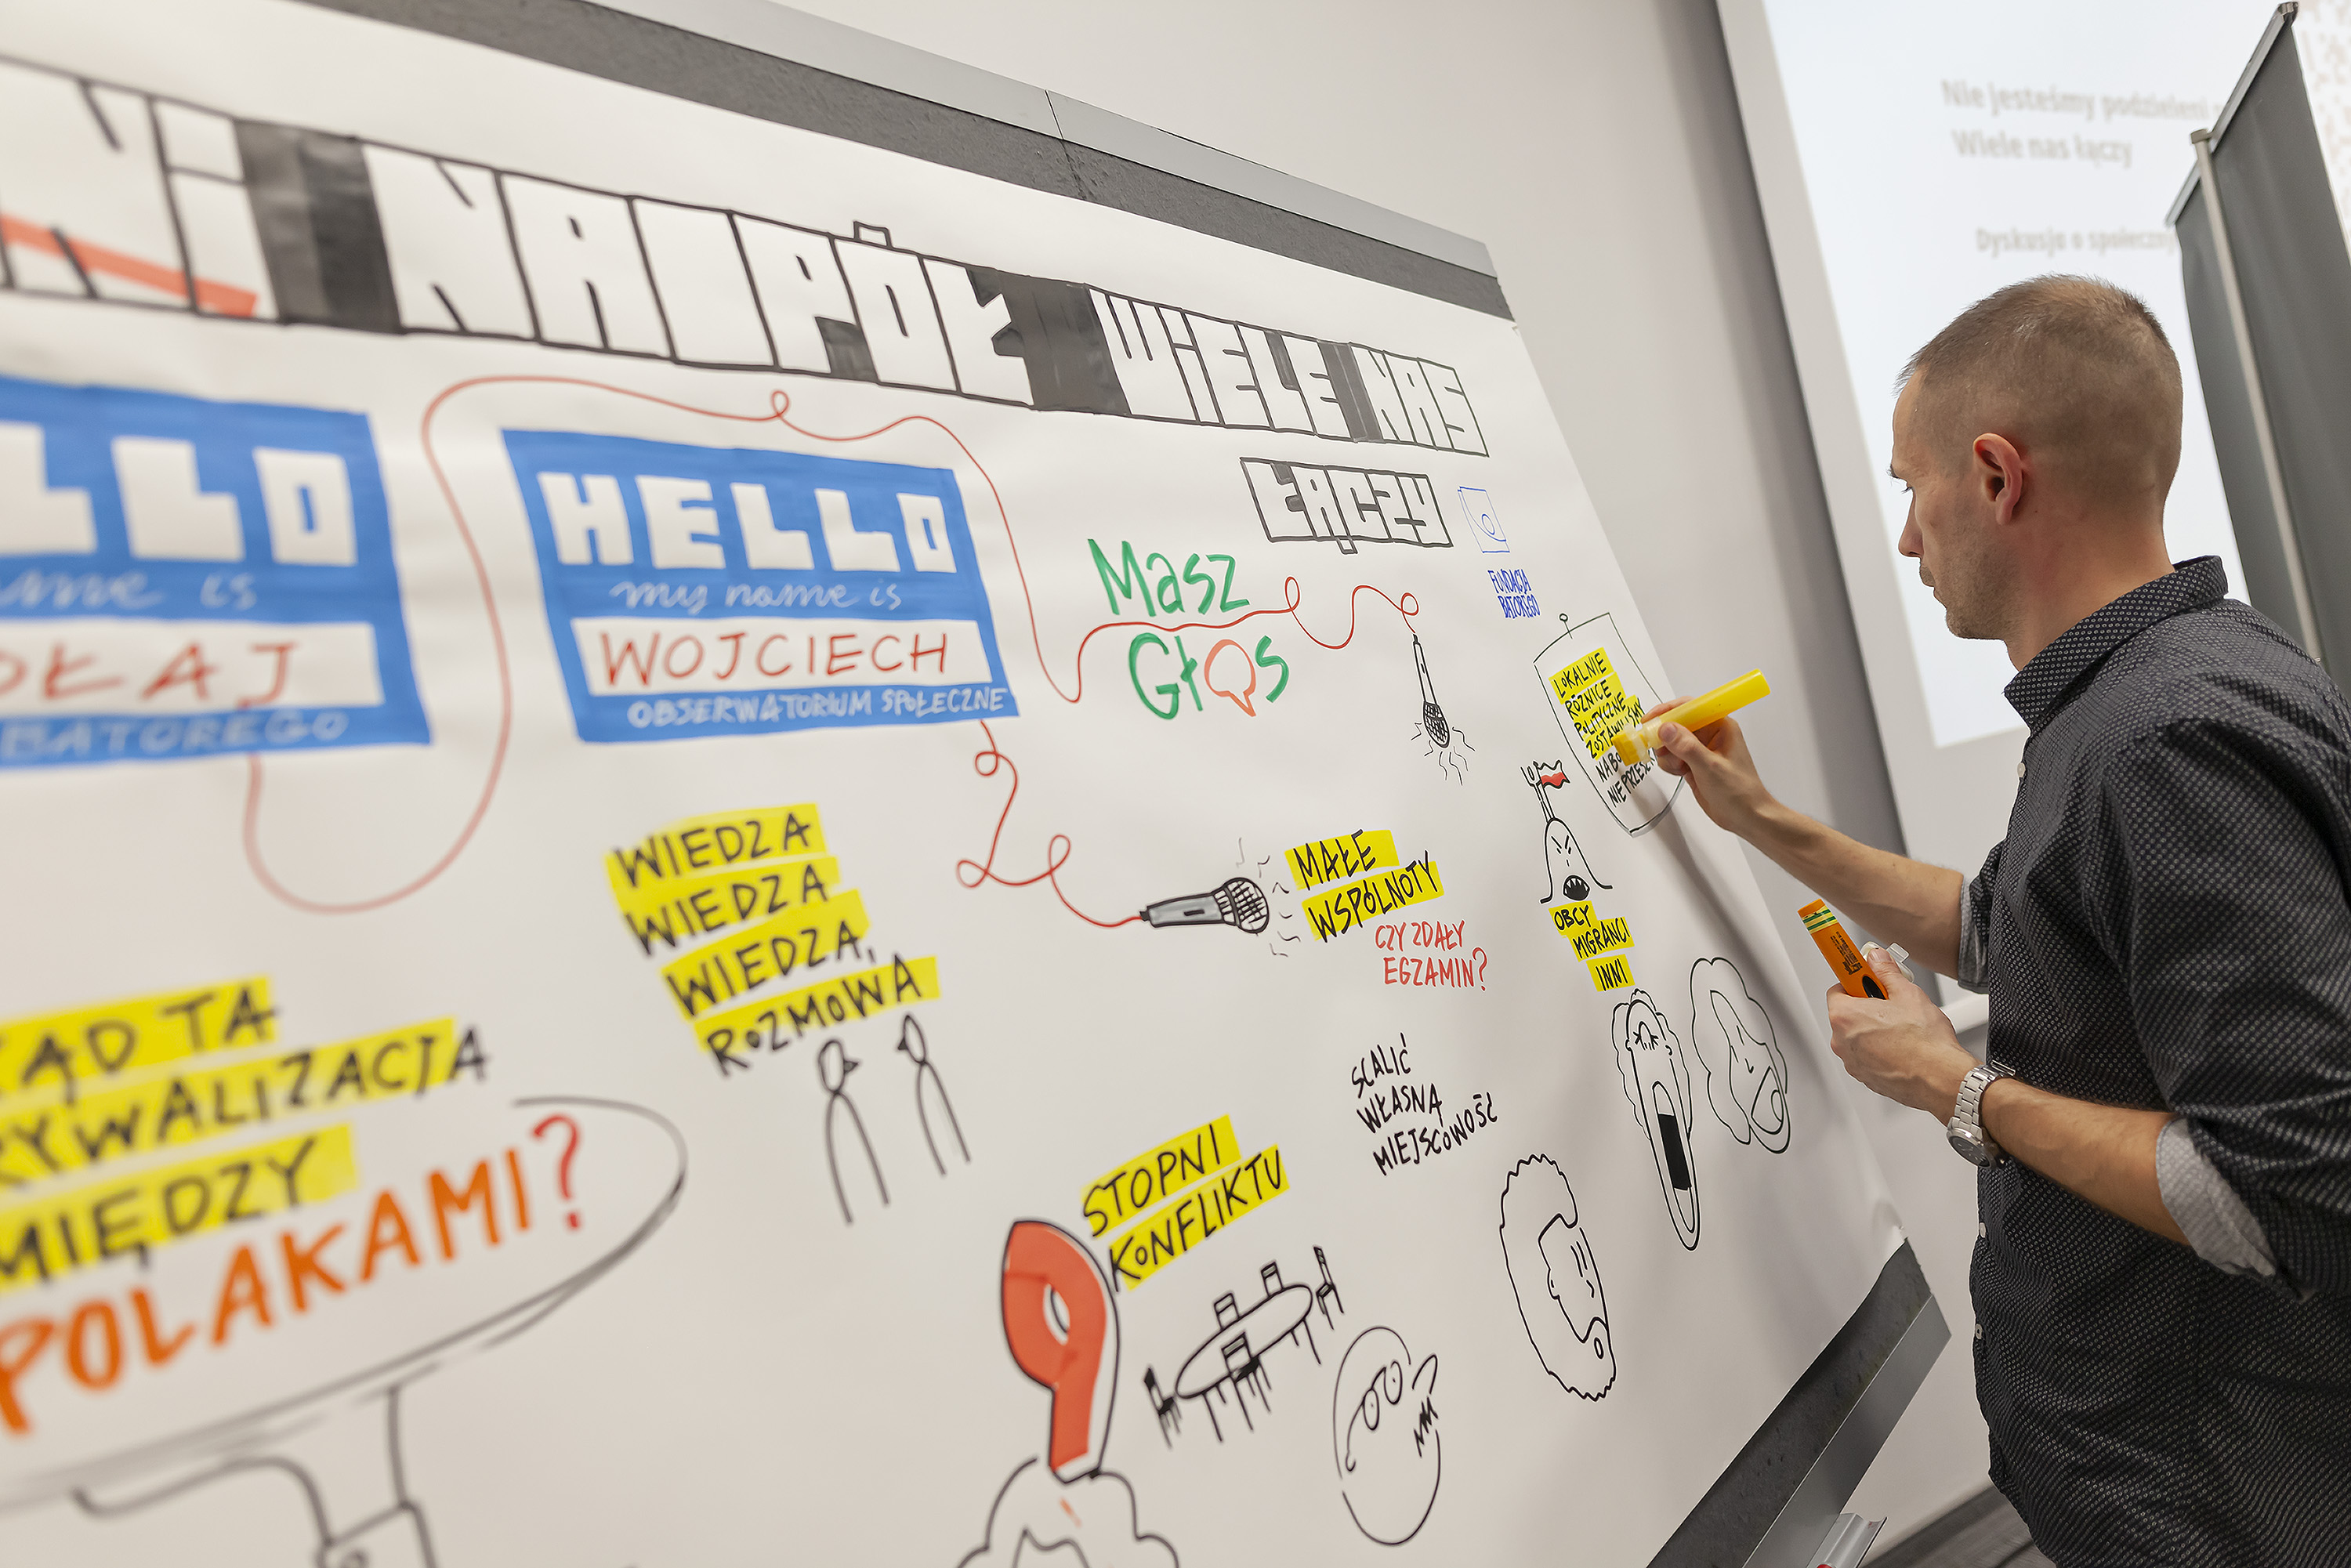 NI NAPÓŁ WIELE NAS
ŁĄCZY
Nie jesteśmy podzieleni
Wiele nas łączy
Dyskusja o społeczny
LLO
name is
OŁAJ
BATOREGO
HELLO
my name is
WOJCIECH
OBSERWATORIUM SPOŁECZNE
Masz
Głos
FUNDACJA
BATOREGO
LOKALNIE
RÓŻNICE
POLITYCZNE
NIE
WIEDZA
WIEDZA
WIEDZA,
ROZMOWA
MAŁE
WSPÓLNOTY
CZY ZDAŁY
EGZAMIN?
OBCY
MIGRANCI
INNI
SCALIĆ
WŁASNĄ
MIEJSCOWOŚĆ
ĄD TA
RYWALIZACJA
MIĘDZY
POLAKAMI?
STOPNI
KONFLIKTU
9